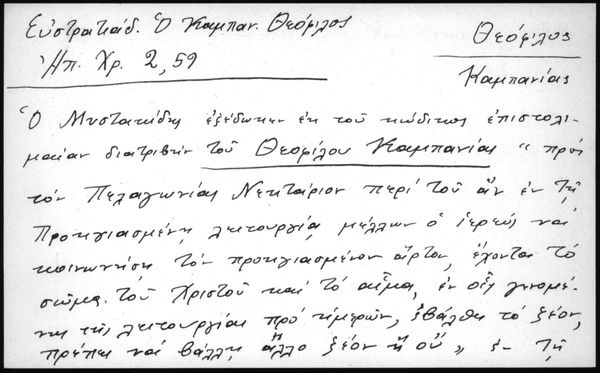 Εὐστρατιάδ. Ὁ Καμπαν. Θεόφιλος
Ἠπ. Χρ. 2, 59
Θεόφιλος
Καμπανίας
Ὁ Μυστακίδης ἐξέδωκεν ἐκ τοῦ κώδικος ἐπιστολι-
μαίαν διατριβὴν τοῦ Θεοφίλου Καμπανίας "πρὸς
τὸν Πελαγωνίας Νεκτάριον περὶ τοῦ ἂν ἐν τῇ
Προηγιασμένῃ λειτουργίᾳ μέλλων ὁ ἱερεὺς νὰ
κοινωνήσῃ τὸν προηγιασμένον ἄρτον, ἔχοντα τὸ
σῶμα τοῦ Χριστοῦ καὶ τὸ αἷμα, ἐν οἷς γενομέ-
νης τῆς λειτουργίας πρὸ ἡμερῶν, ἐβάλθη τὸ ζέον,
πρέπει νὰ βάλλῃ ἄλλο ζέον ἢ οὔ" ἐν τῇ